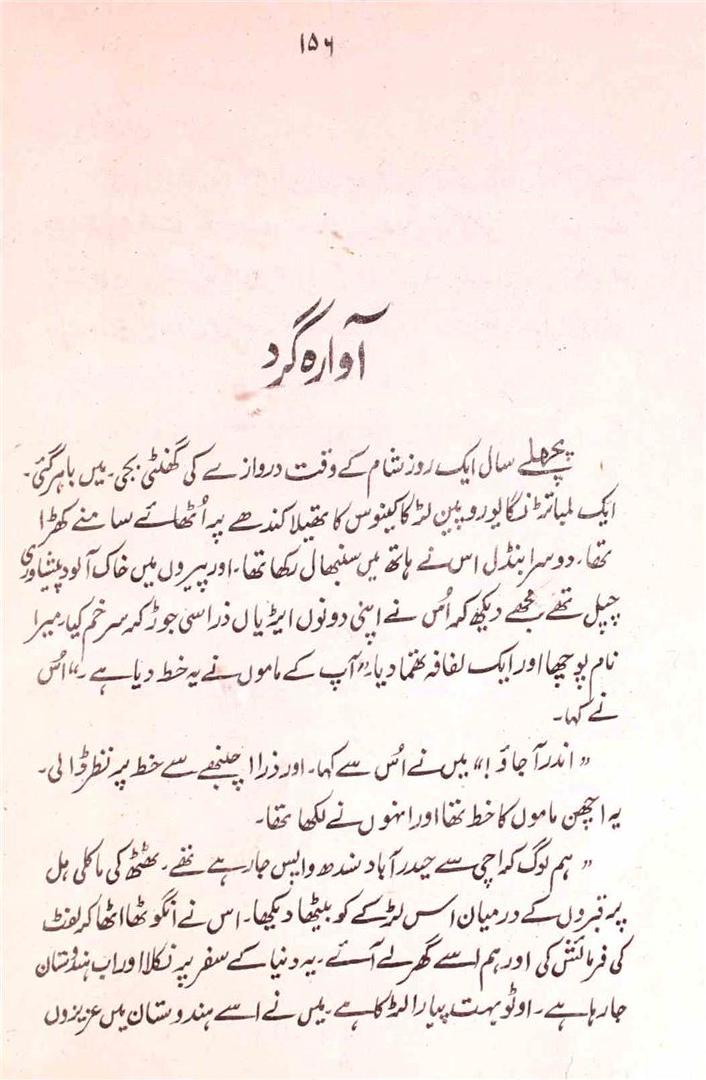 ۱۵۶
آوارہ گرد
پچھلے سال ایک روز شام کے وقت دروازے کی گھنٹی بجی۔ میں باہر گئی۔
ایک لمبا تڑنگا یوروپین لڑکا کینوس کا تھیلا کندھے پر اُٹھائے سامنے کھڑا
تھا۔ دوسرا بنڈل اس نے ہاتھ میں سنبھال رکھا تھا۔ اور پیروں میں خاک آلود پیشاوری
چپل تھے۔ مجھے دیکھ کر اُس نے اپنی دونوں ایڑیاں ذرا سی جوڑ کر سر خم کیا۔ میرا
نام پوچھا اور ایک لفافہ تھما دیا۔ "آپ کے ماموں نے یہ خط دیا ہے۔" اُس
نے کہا۔
"اندر آ جاؤ!" میں نے اُس سے کہا۔ اور ذرا اچنبھے سے خط پر نظر ڈالی۔
یہ اچھن ماموں کا خط تھا اور انہوں نے لکھا تھا۔
"ہم لوگ کراچی سے حیدرآباد سندھ واپس جا رہے تھے۔ ٹھٹھ کی ماکلی ہل
پر قبروں کے درمیان اس لڑکے کو بیٹھا دیکھا۔ اس نے انگوٹھا اٹھا کر لفٹ
کی فرمائش کی اور ہم اسے گھر لے آئے۔ یہ دنیا کے سفر پر نکلا اور اب ہندوستان
جا رہا ہے۔ اوٹو بہت پیارا لڑکا ہے۔ میں نے اسے ہندوستان میں عزیزوں